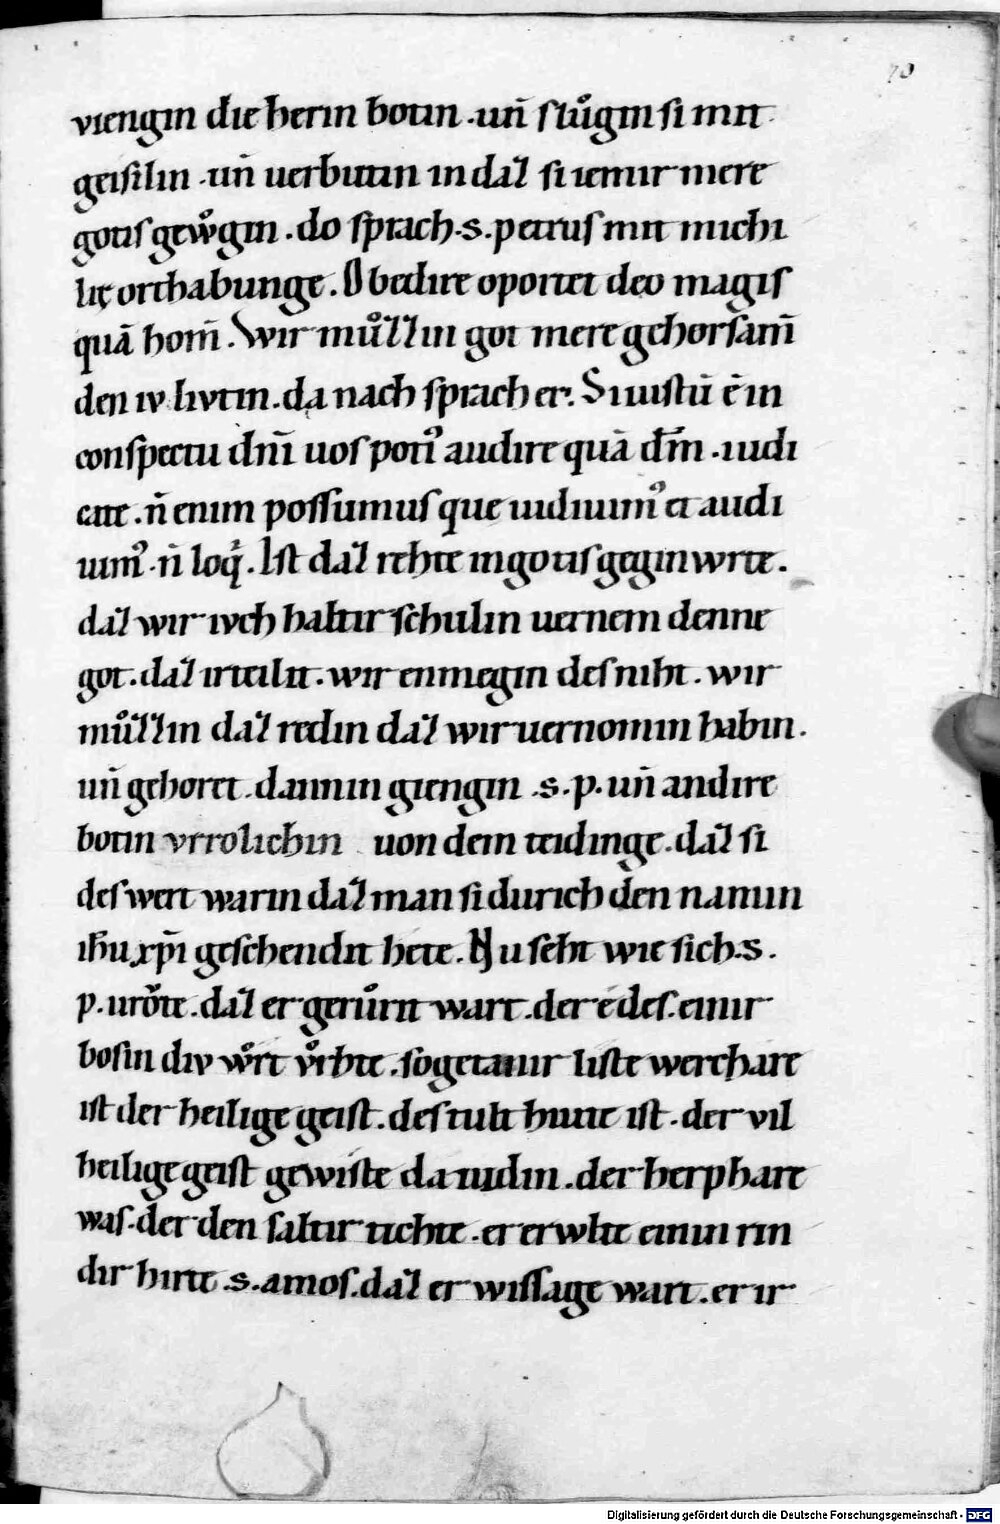 70
viengin die herin botin .uñ ſluͦgin ſi mit
geiſilin .uñ uerbutin in daʒ ſi iemir mere
gotiſ gewͦgin .do ſprach .s. petruſ mit michi
lir orthabunge. Obedire oportet deo magiſ
quā hom̄. Wir muͦʒʒin got mere gehorſam̄
den iv livtin. da nach ſprach er. Si iuſtū ē in
conſpectu dn̄i uoſ poti᷒ audire quā dm̄ .iudi
cate .n̄ enim poſſumuſ que uidimim᷒ et audi
uim᷒ .n̄ loqͥ. Iſt daʒ rehte in gotiſ geginwrte.
daʒ wir ivch haltir ſchulin uernem denne
got. daʒ irteilit. wir enmegin deſ niht. wir
muͦʒʒin daʒ redin daʒ wir uernomin habin.
uñ gehoret. dannin giengin .s. p. uñ andire
botin vrrolichin uon dem teidinge. daʒ ſi
deſ wert warin daʒ man ſi durich den namin
ih̄u xp̄i geſchendit hete. Nu ſeht wie ſich .s.
p. uroͮte. daʒ er geruͦrit wart. der é deſ. einir
boſin div wͦrt vͦrhte. ſogetanir liſte werchare
iſt der heilige geiſt. deſ tult hiute iſt. der vil
heilige geiſt gewiſte dauidin. der herphare
waſ. der den ſaltir tichte. er erwlte einin rin
dir hirte .s. amoſ. daʒ er wiſſage wart. er ir
Digitalisierung gefördert durch die Deutsche Forschungsgemeinschaft - DFG